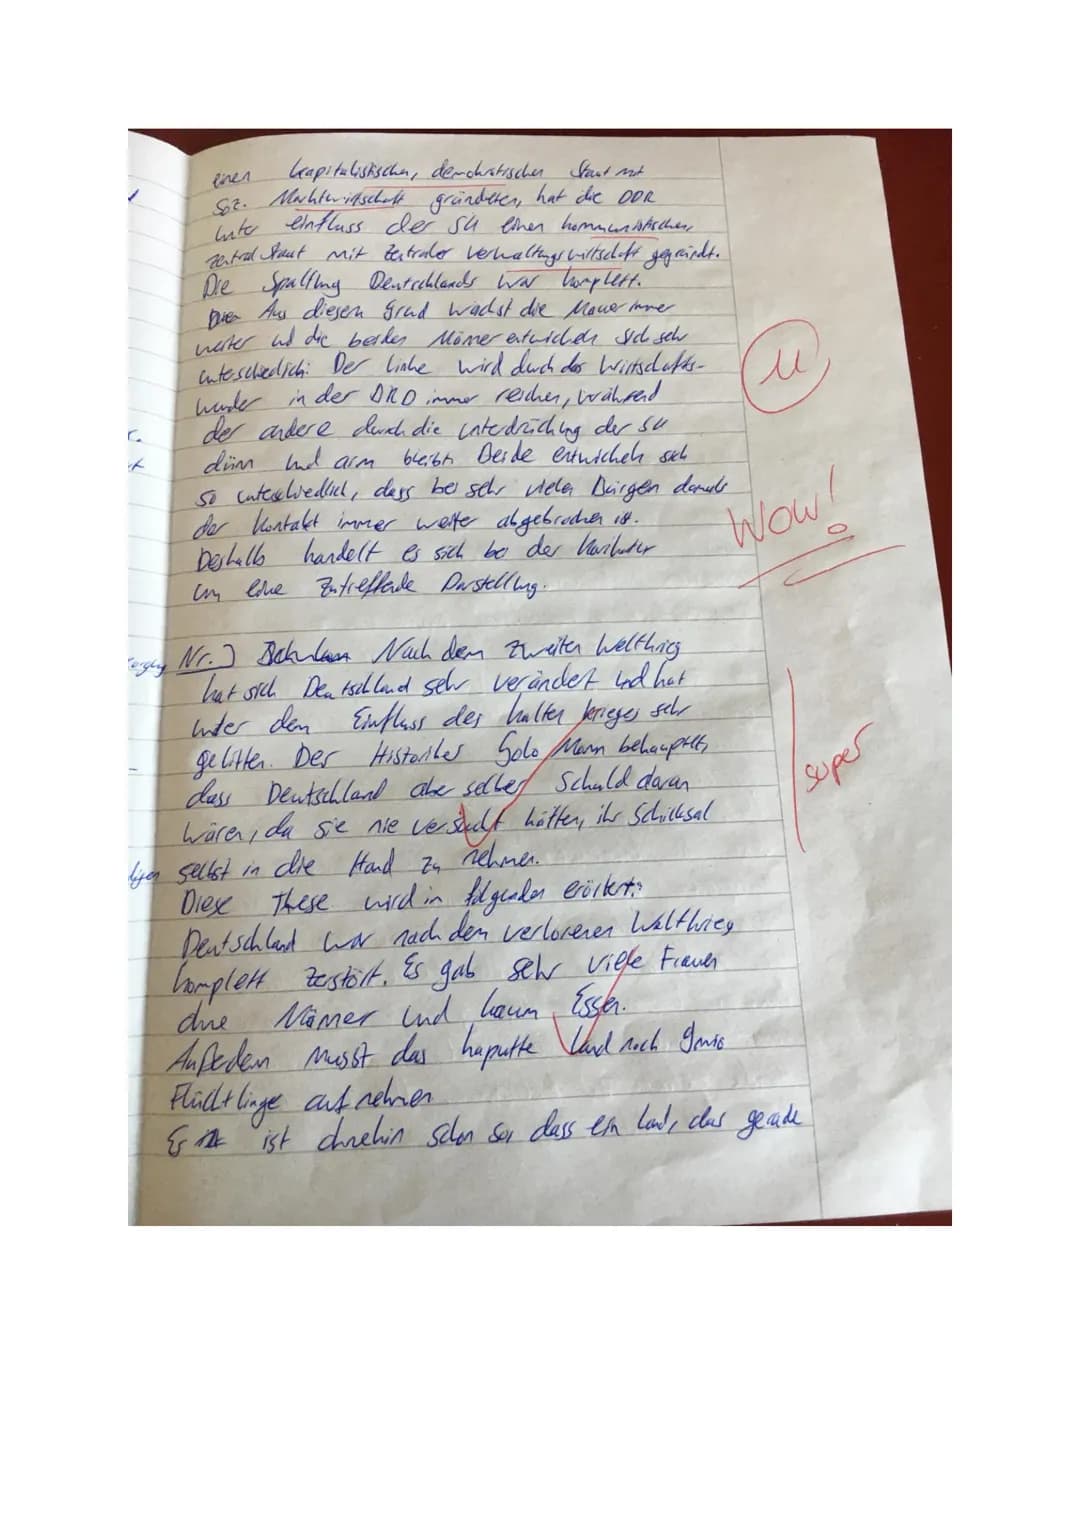 einen kapitalistischen, demokratischen Staat mit
Soz. Marktwirtschaft gründeten, hat die DDR
unter einfluss der SU einen kommunistischen,
zentral Staat mit Zentraler Verwaltungswirtschaft gegründet.
Die Spaltung Deutschlands war komplett.
Aus diesem Grund wächst die Mauer immer
weiter und die beiden Männer entwickeln sich sehr
unterschiedlich: Der linke wird durch das Wirtschafts-
wunder in der BRD immer reicher, während
der andere durch die Unterdrückung der SU
dünn und arm bleibt. Beide entwickeln sich
so unterschiedlich, dass bei sehr vielen Bürgern damals
der Kontakt immer weiter abgebrochen ist.
Deshalb handelt es sich bei der Karikatur
um eine Zutreffende Darstellung.
u
Wow!
Nr. 3 Nach dem zweiten Weltkrieg
hat sich Deutschland sehr verändert und hat
unter dem Einfluss des kalten krieges sehr
gelitten. Der Historiker Golo Mann behauptet,
dass Deutschland aber selber Schuld daran
wären, da sie nie versucht hätten, ihr Schicksal
selbst in die Hand zu nehmen.
super
Diese These wird in folgenden erörtert:
Deutschland war nach dem verlorenen Weltkrieg
komplett zerstört. Es gab sehr viele Frauen
ohne Männer und kaum Essen.
Außerdem musst das kaputte Land noch 9mio
Flüchtlinge aufnehmen
Es ist ohnehin schon so, dass ein Land, das gerade